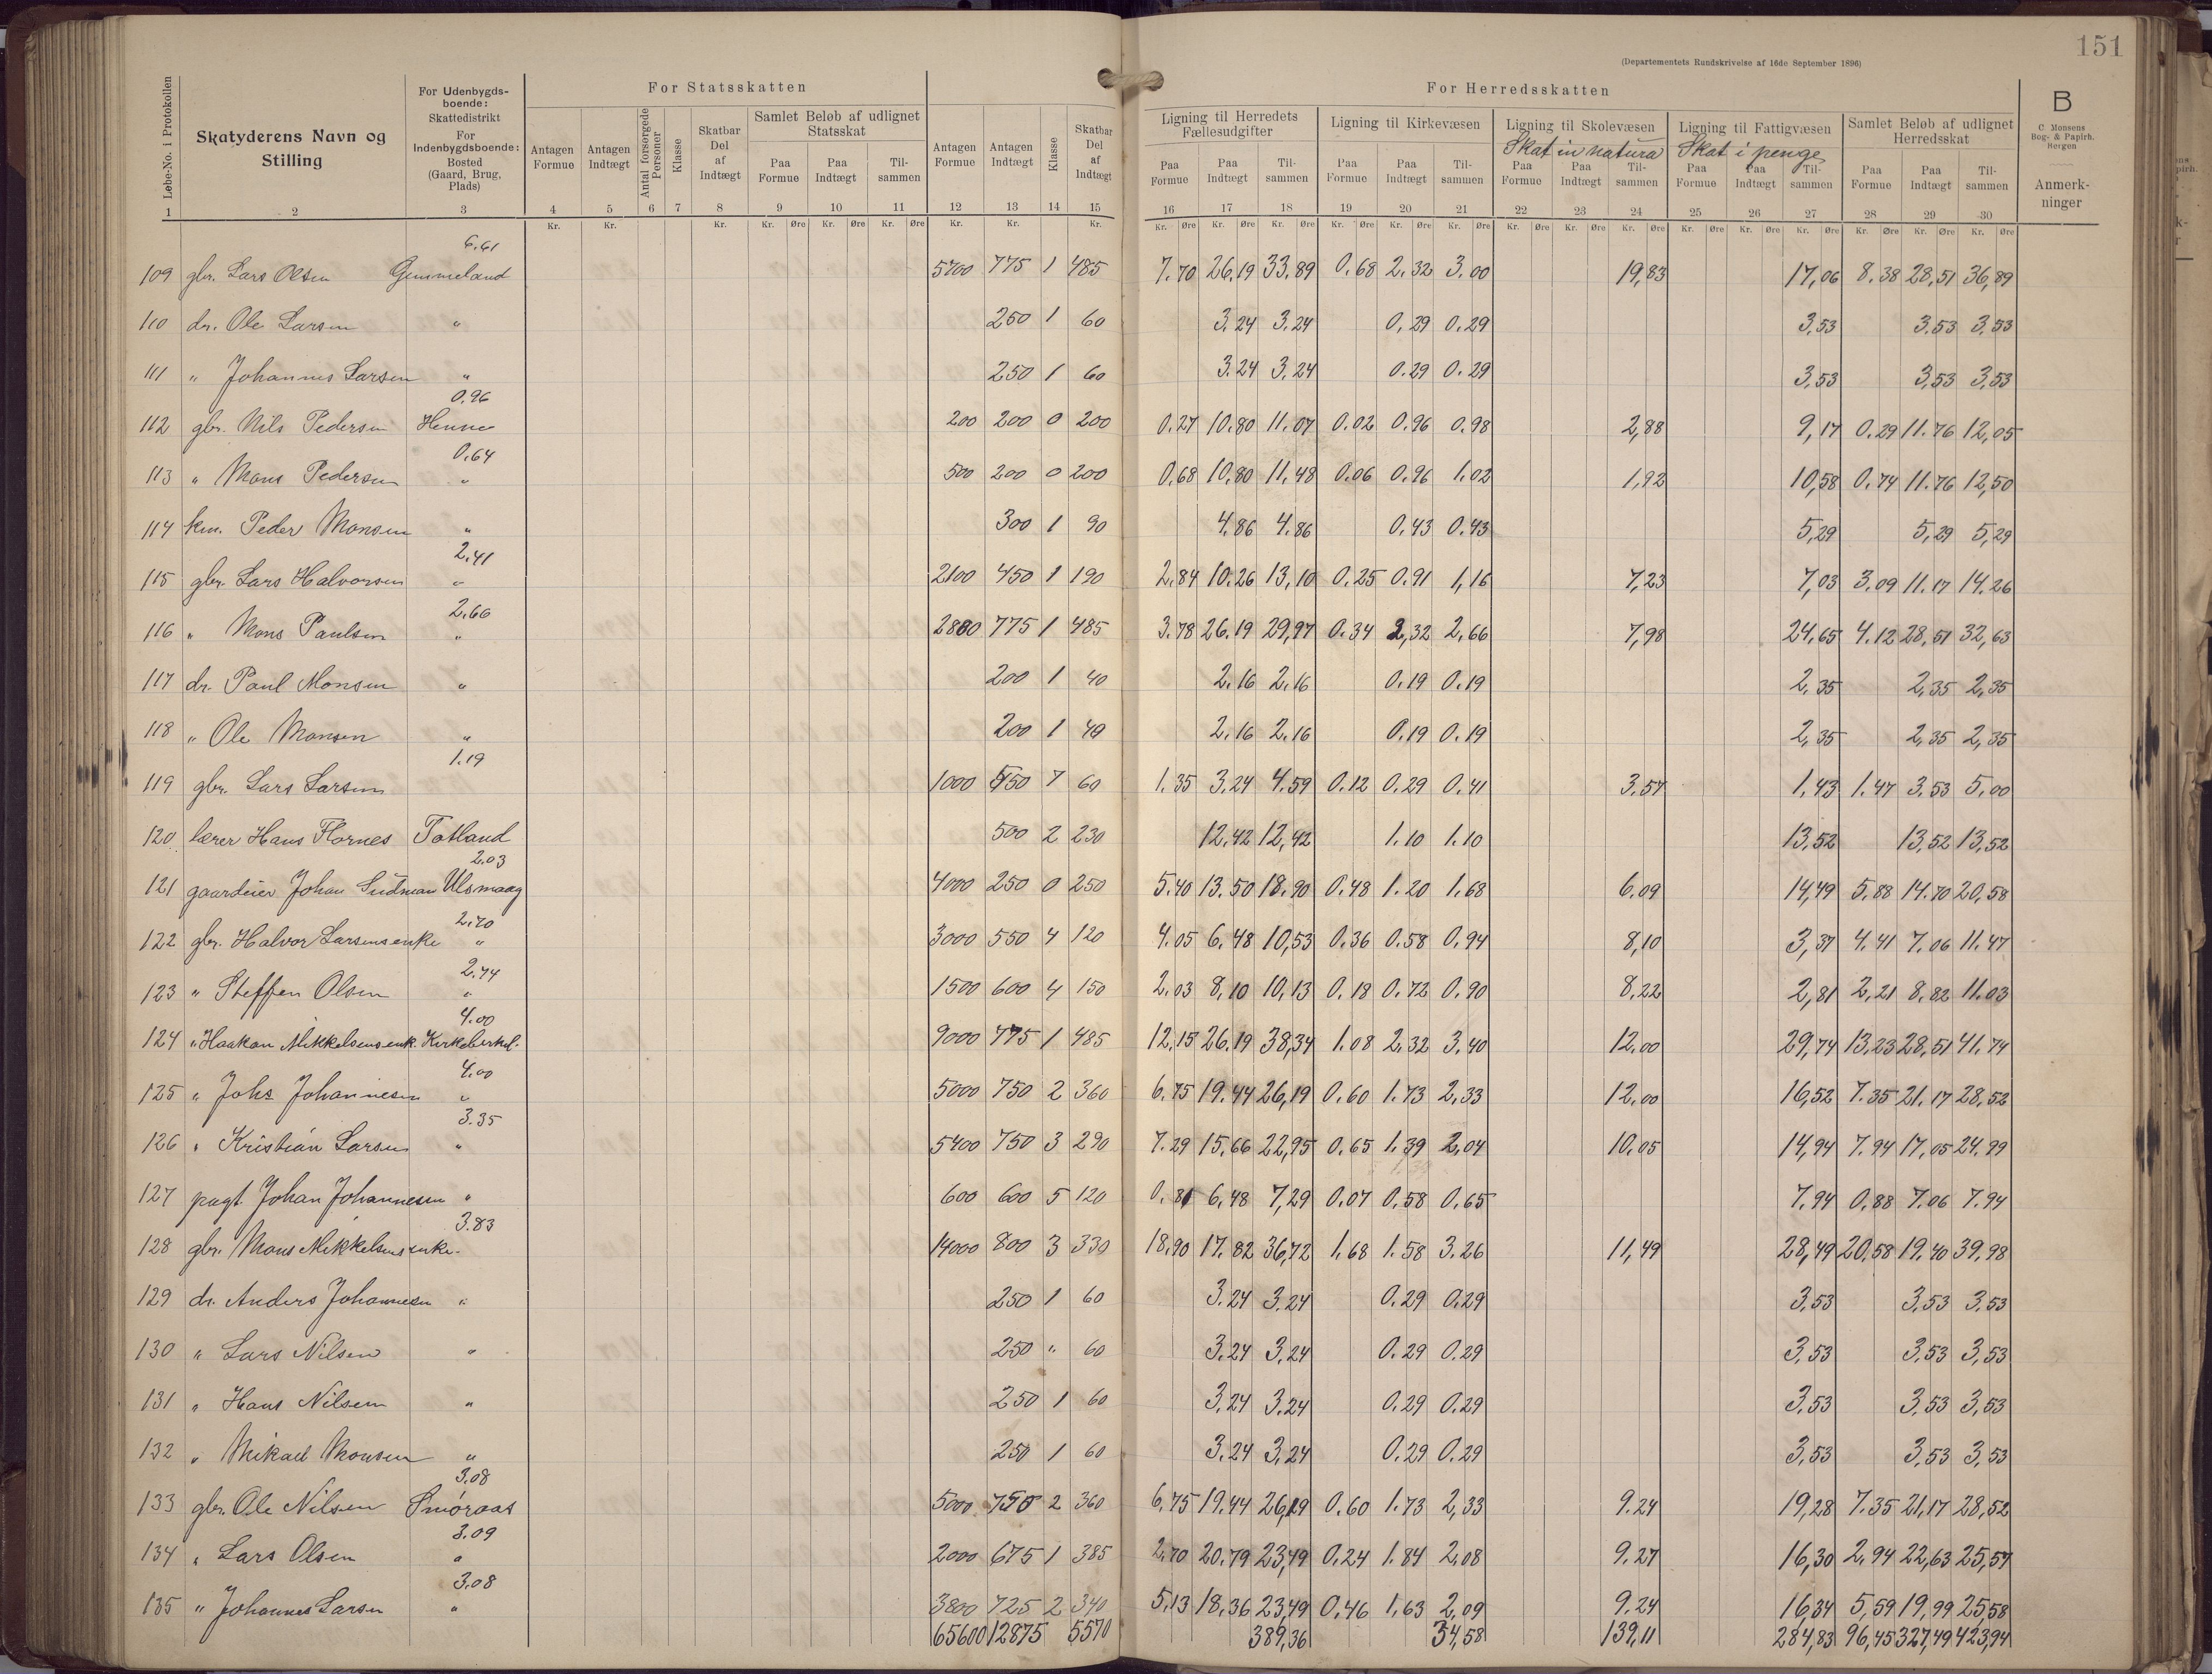 151
(Departementets Rundskrivelse af 16de September 1896)
Løbe-No. i Protokollen | Skatyderens Navn og Stilling | For Udenbygdsboende: Skattedistrikt For Indenbygdsboende: Bosted (Gaard, Brug, Plads) | For Statsskatten | For Herredsskatten | B
C. Monsens Bog- & Papirh. Bergen
Anmerkninger
Antagen Formue | Antagen Indtægt | Antal forsørgede Personer | Klasse | Skatbar Del af Indtægt | Samlet Beløb af udlignet Statsskat | Antagen Formue | Antagen Indtægt | Klasse | Skatbar Del af Indtægt | Ligning til Herredets Fællesudgifter | Ligning til Kirkevæsen | Ligning til Skolevæsen | Ligning til Fattigvæsen | Samlet Beløb af udlignet Herredsskat
Skat in natura | Skat i penge
Paa Formue | Paa Indtægt | Tilsammen | Paa Formue | Paa Indtægt | Tilsammen | Paa Formue | Paa Indtægt | Tilsammen | Paa Formue | Paa Indtægt | Tilsammen | Paa Formue | Paa Indtægt | Tilsammen | Paa Formue | Paa Indtægt | Tilsammen
1 2 3 4 5 6 7 8 9 10 11 12 13 14 15 16 17 18 19 20 21 22 23 24 25 26 27 28 29 30
Kr. Kr. Kr. Kr. Øre Kr. Øre Kr. Øre Kr. Kr. Kr. Kr. Øre Kr. Øre Kr. Øre Kr. Øre Kr. Øre Kr. Øre Kr. Øre Kr. Øre Kr. Øre Kr. Øre Kr. Øre Kr. Øre Kr. Øre Kr. Øre Kr. Øre
6.61
109 gbr. Lars Olsen Gimmeland 5700 775 1 485 7.70 26,19 33,89 0.68 2.32 3.00 19,83 17,06 8.38 28,51 36,89
110 dr. Ole Larsen " 250 1 60 3.24 3.24 0.29 0.29 3,53 3.53 3.53
111 " Johannes Larsen " 250 1 60 3.24 3.24 0.29 0.29 3,53 3,53 3,53
0.96
112 gbr. Nils Pedersen Henne 200 200 0 200 0.27 10.80 11.07 0.02 0.96 0.98 2,88 9,17 0.29 11.76 12,05
0.64
113 " Mons Pedersen " 500 200 0 200 0.68 10,80 11,48 0.06 0.96 1.02 1,92 10,58 0.74 11.76 12,50
114 km. Peder Monsen " 300 1 90 4.86 4.86 0.43 0.43 5,29 5,29 5,29
2.41
115 gbr. Lars Halvorsen " 2100 450 1 190 2.84 10.26 13,10 0.25 0.91 1,16 7,23 7,03 3.09 11.17 14.26
2.66
116 " Mons Paulsen " 2800 775 1 485 3.78 26.19 29,97 0.34 2,32 2.66 7,98 24,65 4.12 28,51 32,63
117 dr. Paul Monsen " 200 1 40 2.16 2.16 0.19 0.19 2,35 2,35 2,35
118 " Ole Monsen " 200 1 40 2.16 2.16 0.19 0.19 2,35 2,35 2,35
1.19
119 gbr. Lars Larsen 1000 550 7 60 1.35 3.24 4.59 0.12 0.29 0.41 3.57 1,43 1.47 3.53 5.00
120 lærer Hans Flornes Totland 500 2 230 12.42 12,42 1.10 1.10 13,52 13,52 13,52
2.03
121 gaardeier Johan Sudman Ulsmaag 4000 250 0 250 5.40 13.50 18.90 0.48 1.20 1,68 6.09 14,49 5.88 14.70 20,58
2.70
122 gbr. Halvor Larsens enke " 3000 550 4 120 4.05 6.48 10,53 0.36 0.58 0.94 8,10 3,37 4.41 7.06 11.47
2.74
123 " Steffen Olsen " 1500 600 4 150 2.03 8,10 10,13 0.18 0.72 0.90 8,22 2,81 2,21 8.82 11.03
4.00
124 " Haakon Mikkelsens enk. Kirkebirkel. 9000 775 1 485 12,15 26.19 38,34 1.08 2.32 3,40 12.00 29,74 13,23 28,51 41,74
4.00
125 " Johs Johannesen " 5000 750 2 360 6.75 19.44 26,19 0.60 1.73 2,33 12,00 16,52 7.35 21.17 28,52
3.35
126 " Kristian Larsen " 5400 750 3 290 7.29 15,66 22,95 0.65 1.39 2,04 10.05 14,94 7.94 17,05 24.99
127 pagt. Johan Johannesen " 600 600 5 120 0.81 6,48 7,29 0.07 0.58 0.65 7.94 0,88 7.06 7.94
3.83
128 gbr. Mons Mikkelsens enke. 14000 800 3 330 18,90 17.82 36,72 1,68 1.58 3.26 11,49 28,49 20,58 19.40 39.98
129 dr. Anders Johannesen " 250 1 60 3.24 3.24 0.29 0.29 3,53 3,53 3,53
130 " Lars Nilsen " 250 " 60 3.24 3,24 0.29 0.29 3,53 3,53 3,53
131 " Hans Nilsen " 250 1 60 3,24 3.24 0.29 0.29 3.53 3,53 3,53
132 " Mikael Monsen " 250 1 60 3.24 3,24 0.29 0.29 3,53 3,53 3,53
3.08
133 gbr. Ole Nilsen Smøraas 5000 750 2 360 6,75 19.44 26,19 0.60 1.73 2,33 9.24 19,28 7.35 21,17 28,52
3.09
134 " Lars Olsen " 2000 675 1 385 2,70 20.79 23,49 0,24 1.84 2,08 9.27 16,30 2,94 22,63 25,57
3.08
135 " Johannes Larsen " 3800 725 2 340 5,13 18,36 23,49 0,46 1,63 2,09 9.24 16,34 5,59 19,99 25,58
65600 12875 5570 389,36 34,58 139,11 284,83 96,45 327,49 423,94